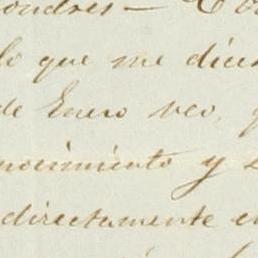 ondres — Co
lo que me dices
de Enero veo, q
nocimiento y s
directamente e